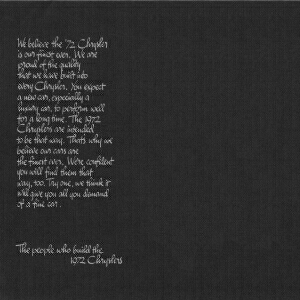 We believe the '72 Chrysler
is our finest ever. We are
proud of the quality
that we have built into
every Chrysler. You expect
a new car, especially a
luxury car, to perform well
for a long time. The 1972
Chryslers are intended
to be that way. That's why we
believe our cars are
the finest ever. We're confident
you will find them that
way, too. Try one, we think it
will give you all you demand
of a fine car.
The people who build the
1972 Chryslers